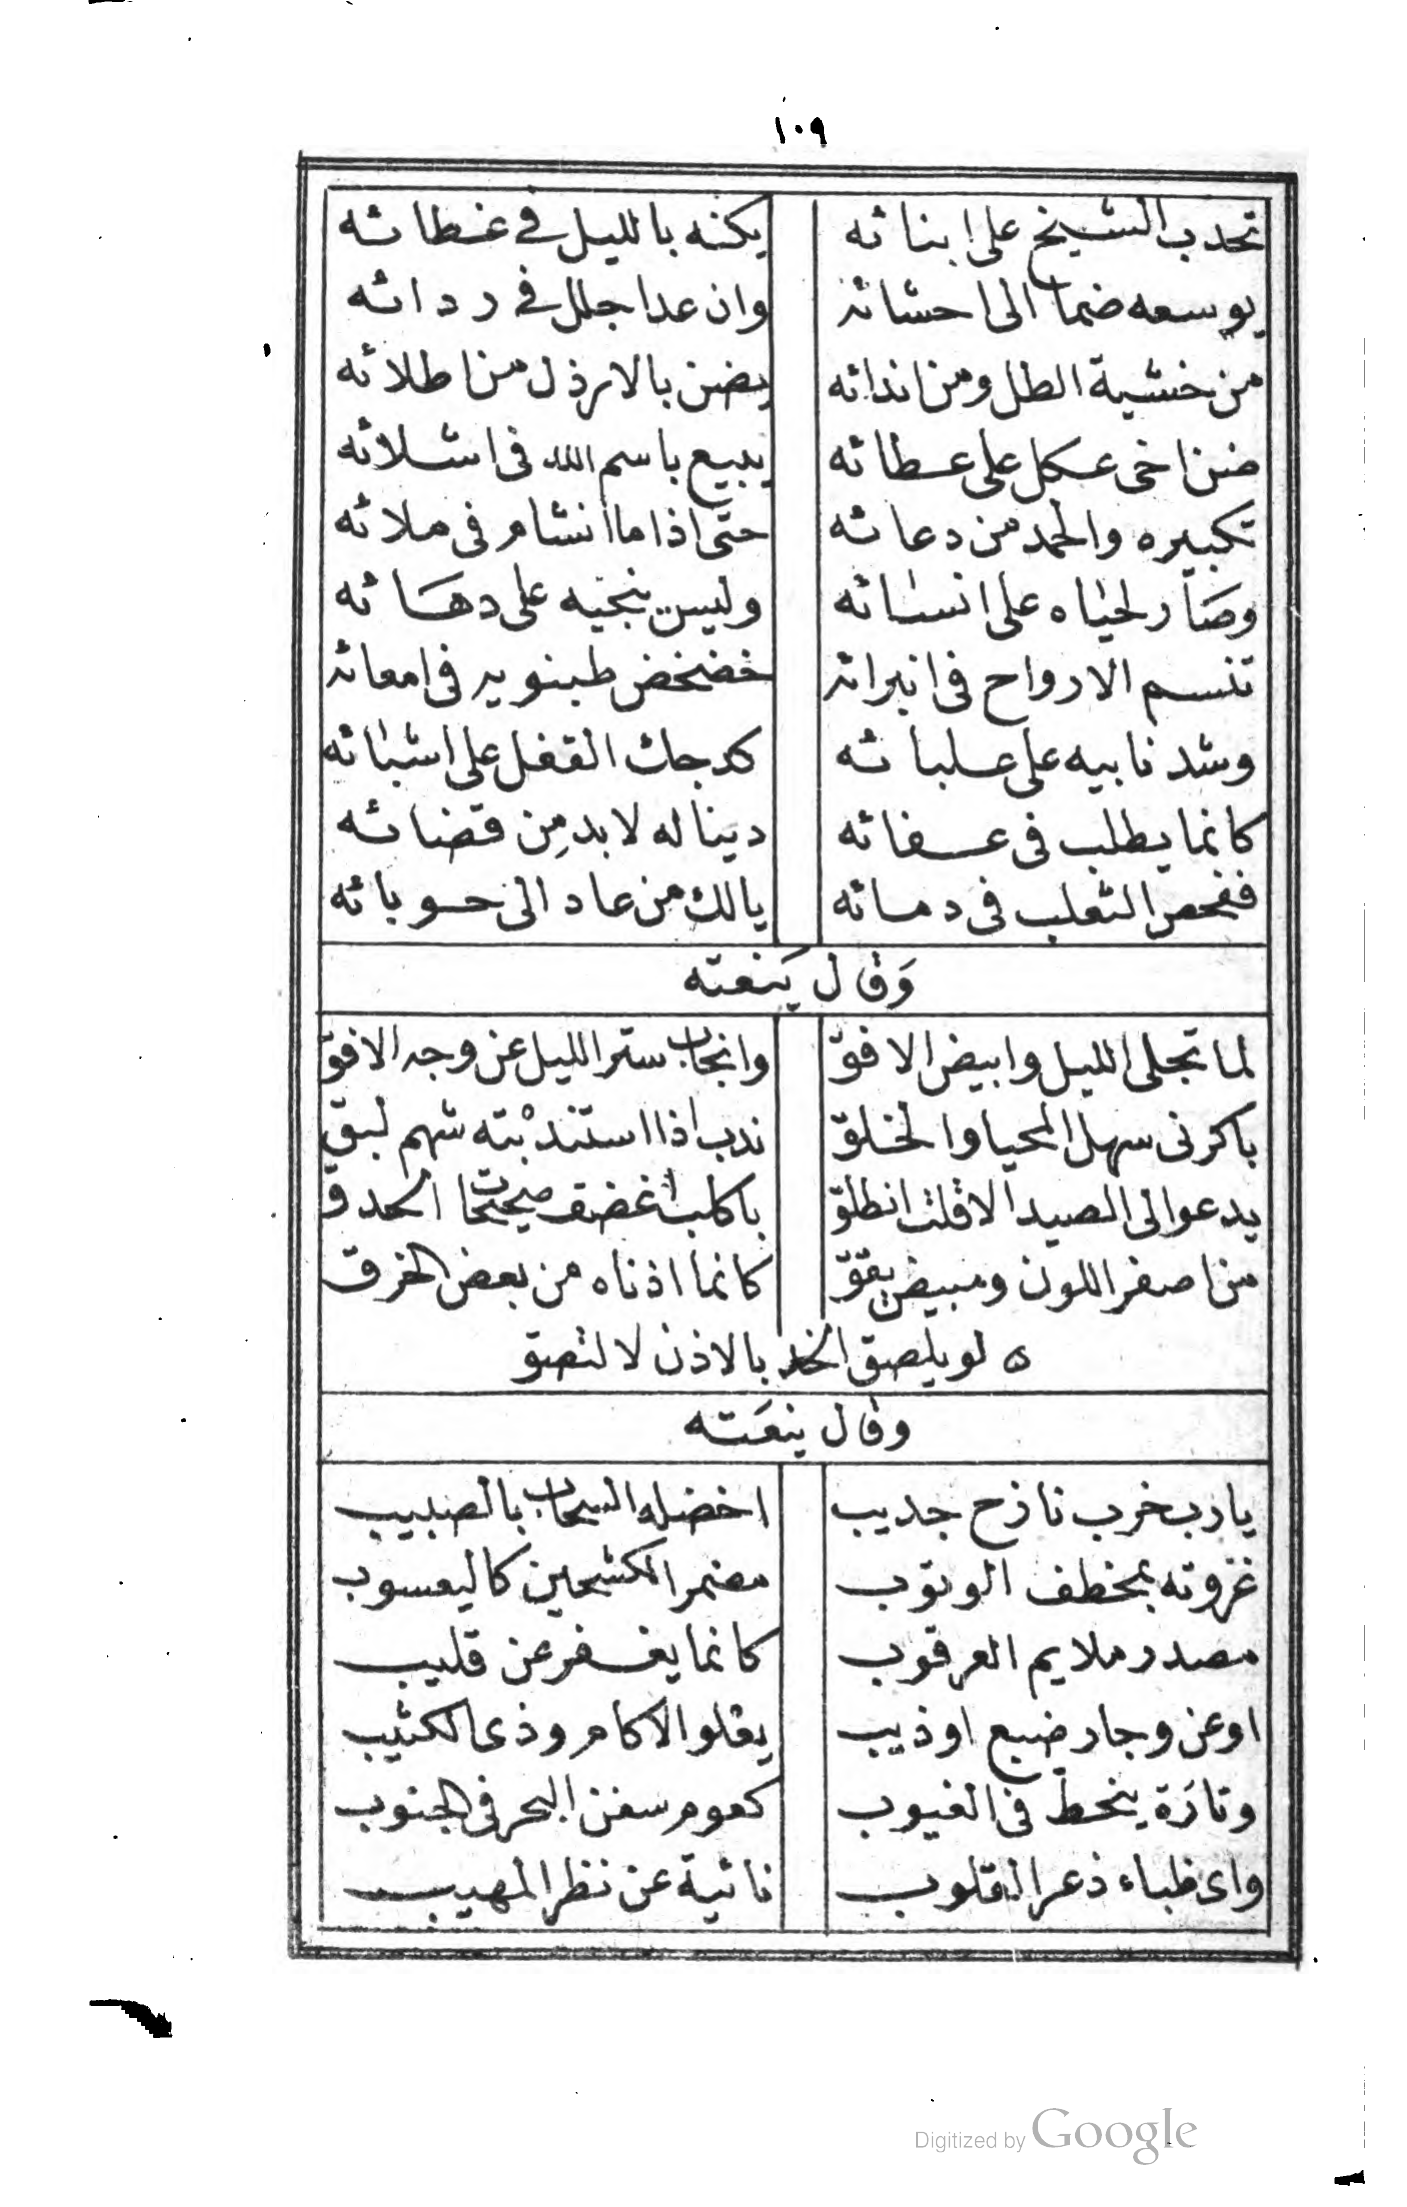 ١٠٩
تحدب الشيخ على ابنائه يكنه بالليل في غطائه
يوسعه ضما الى احشائه وان عدا جلل في ردائه
من خشية الطل ومن اندائه يضن بالارذل من اطلائه
ضن اخى عكل على عطائه يبيع باسم الله فى اشلائه
تكبيره والحمد من دعائه حتى اذا ما انشام فى ملائه
وصار لحياه على انسائه وليس ينجيه على دهائه
تنسم الارواح فى انبرائه خضخض طبنويه فى امعائه
وشد نابيه على علبائه كدجك القفل على اشبائه
كانما يطلب فى عفائه دينا له لا بد من قضائه
ففحص الثعلب فى دمائه يالك من عاد الى حوبائه
وَقال يَنعته
لما تجلى الليل وابيض الافق وانجاب ستر الليل عن وجه الافق
باكرنى سهل المحيا والخلق ندب اذا استندبْته شهم لبق
يدعو الى الصيد الا قلت انطلق باكلب غضف صحيحات الحدق
من اصفر اللون ومبيض يقق كانما اذناه من بعض الخرق
ه لو يلصق الخد بالاذن لالتصق
وقال ينعَته
يارب خرب نازح جديب اخضله السحاب بالصبيب
غزوته بمخطف الوثوب مضمر الكشحين كاليعسوب
مصدر ملايم العرقوب كانما يغفر عن قليب
او عن وجار ضبع او ذيب يقلو الاكام وذى الكثيب
وتارَة ينحطّ فى الغيوب كعوم سفن البحر فى الجنوب
واى ظباء ذعر القلوب نائية عن نظر المهيب
Digitized by Google